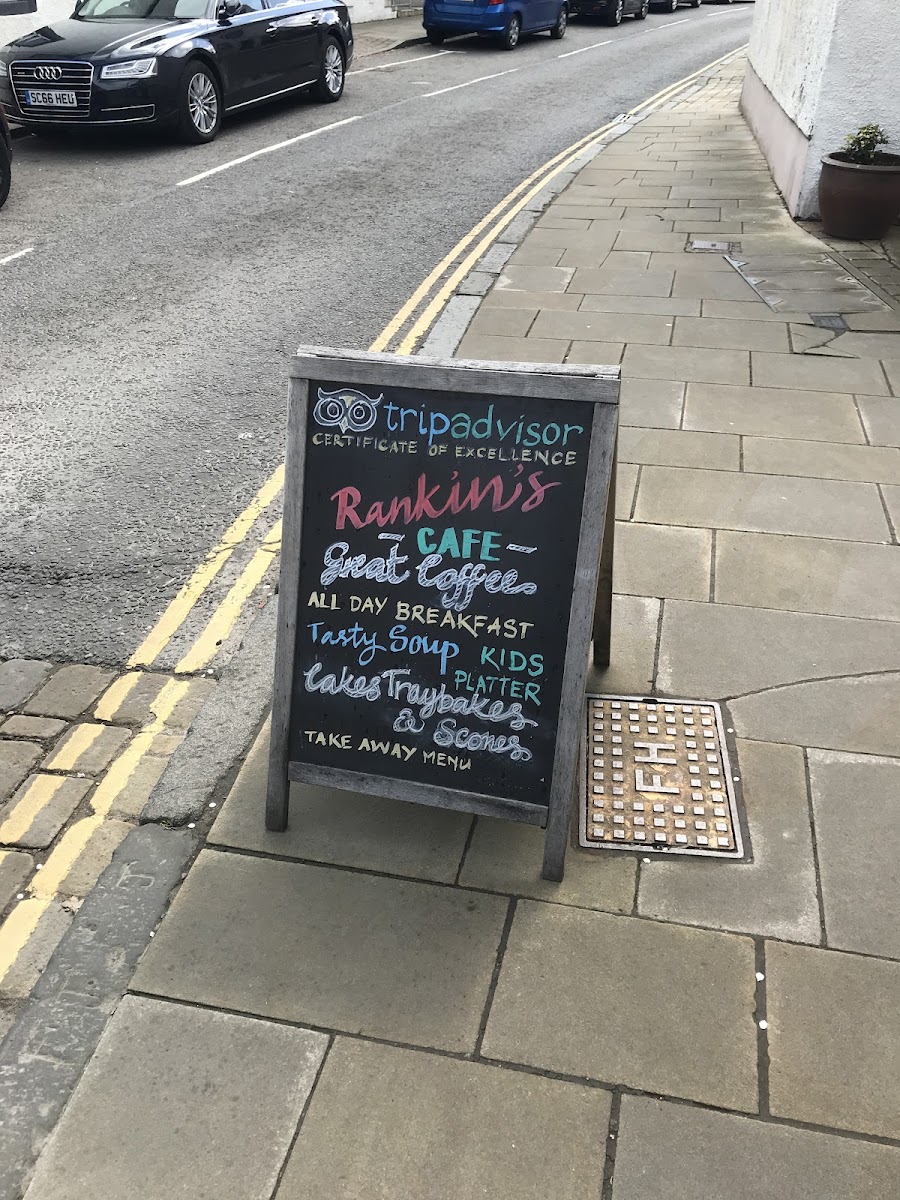 SC66 HEU
tripadvisor
CERTIFICATE OF EXCELLENCE
Rankin's
- CAFE -
Great Coffee
ALL DAY BREAKFAST
Tasty Soup KIDS
PLATTER
Cakes Traybakes
& Scones
TAKE AWAY MENU
FH